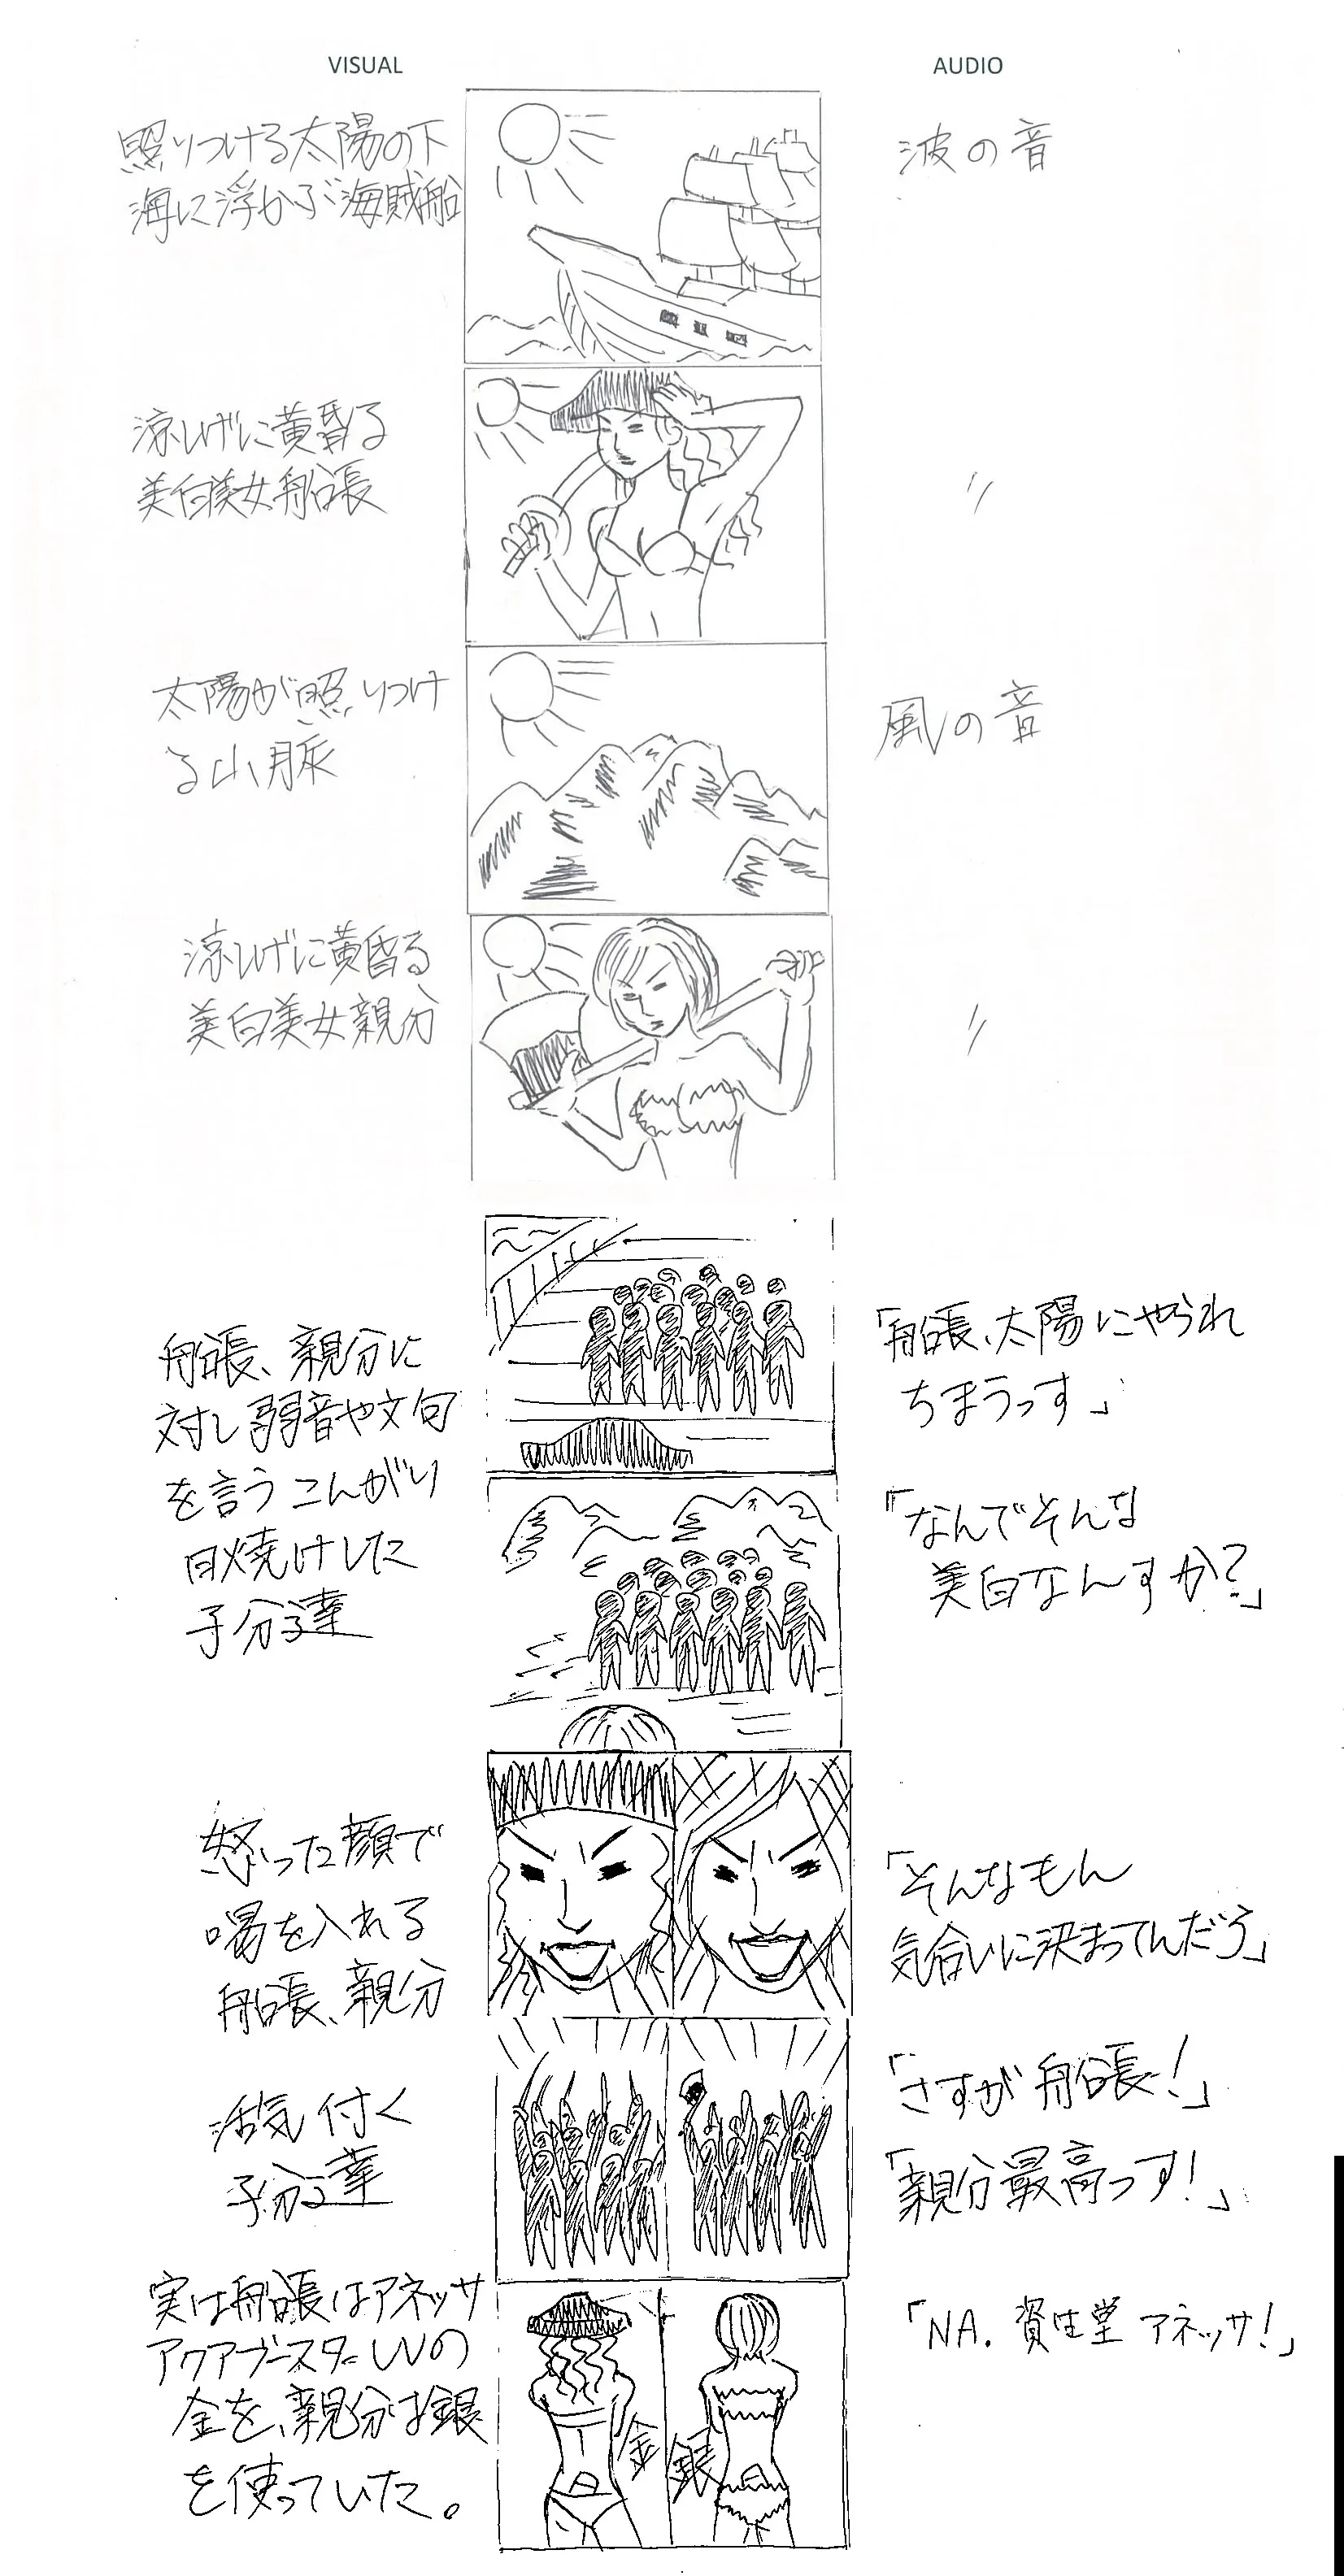 VISUAL
AUDIO
照りつける太陽の下
海に浮かぶ海賊船
波の音
涼しげに黄昏る
美白美女船長
〃
太陽が照りつけ
る山脈
風の音
涼しげに黄昏る
美白美女親分
〃
船長、親分に
対し弱音や文句
を言うこんがり
日焼けした
子分達
「船長、太陽にやられ
ちまうっす」
「なんでそんな
美白なんすか?」
怒った顔で
喝を入れる
船長、親分
「そんなもん
気合いに決まってんだろう」
活気付く
子分達
「さすが船長!」
「親分最高っす!」
実は船長はアネッサ
アクアブースターUVの
金を、親分は銀
を使っていた。
金
銀
「NA. 資生堂 アネッサ!」